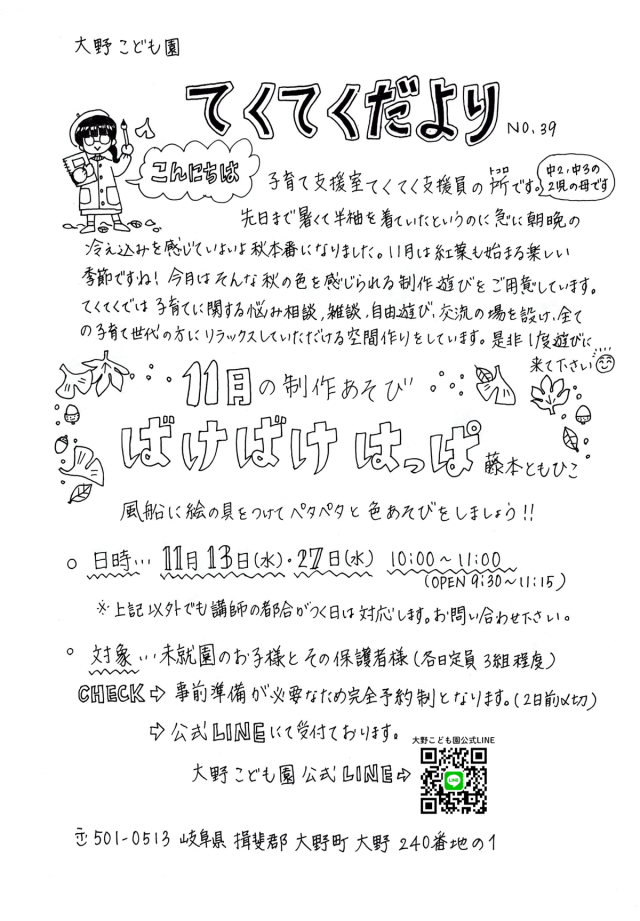 大野こども園
てくてくだより NO.39
こんにちは
子育て支援室てくてく支援員の所です。
トコロ
中2,中3の
2児の母です
先日まで暑くて半袖を着ていたというのに急に朝晩の
冷え込みを感じていよいよ秋本番になりました。11月は紅葉も始まる楽しい
季節ですね!今月はそんな秋の色を感じられる制作遊びをご用意しています。
てくてくでは子育てに関する悩み相談,雑談,自由遊び,交流の場を設け,全て
の子育て世代の方にリラックスしていただける空間作りをしています。是非1度遊びに
来て下さい
11月の制作あそび
ばけばけはっぱ 藤本ともひこ
風船に絵の具をつけてペタペタと色あそびをしましょう!!
○ 日時… 11月13日(水)・27日(水) 10:00~11:00
(OPEN 9:30~11:15)
※上記以外でも講師の都合がつく日は対応します。お問い合わせ下さい。
○ 対象…未就園のお子様とその保護者様(各日定員3組程度)
CHECK⇨ 事前準備が必要なため完全予約制となります。(2日前〆切)
⇨ 公式LINEにて受付ております。
大野こども園公式LINE
大野こども園公式LINE⇨
LINE
〒501-0513 岐阜県 揖斐郡 大野町 大野 240番地の1